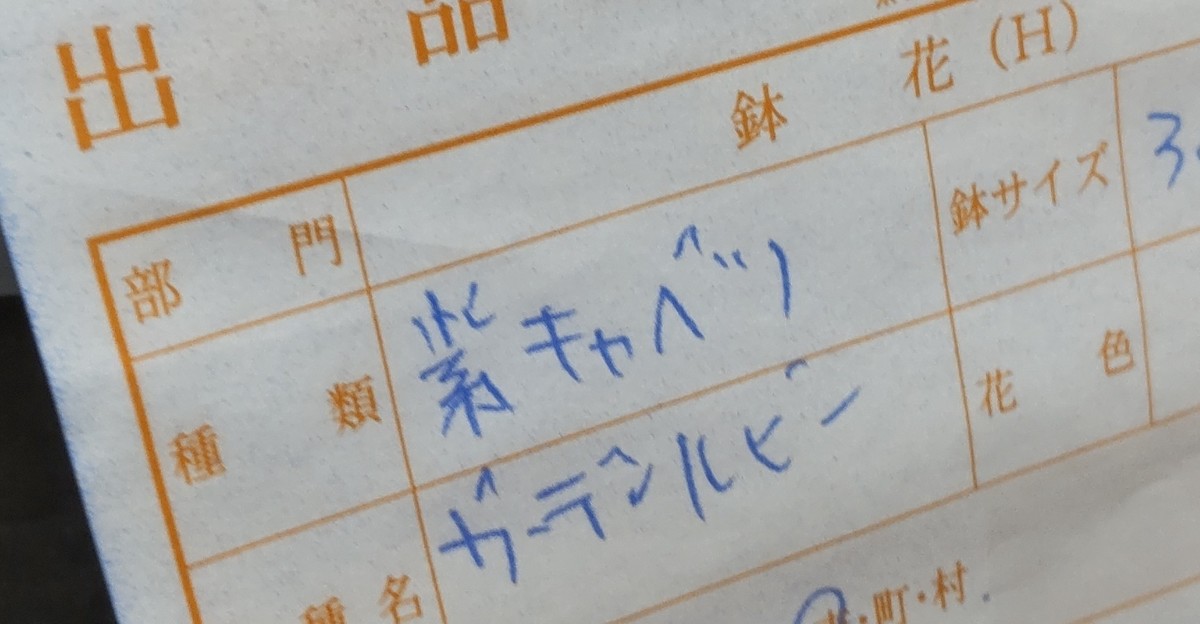 出品
鉢花(H)
部門
種類 紫キャベツ 鉢サイズ 3.
種名 ガーデンルビー 花色
・町・村